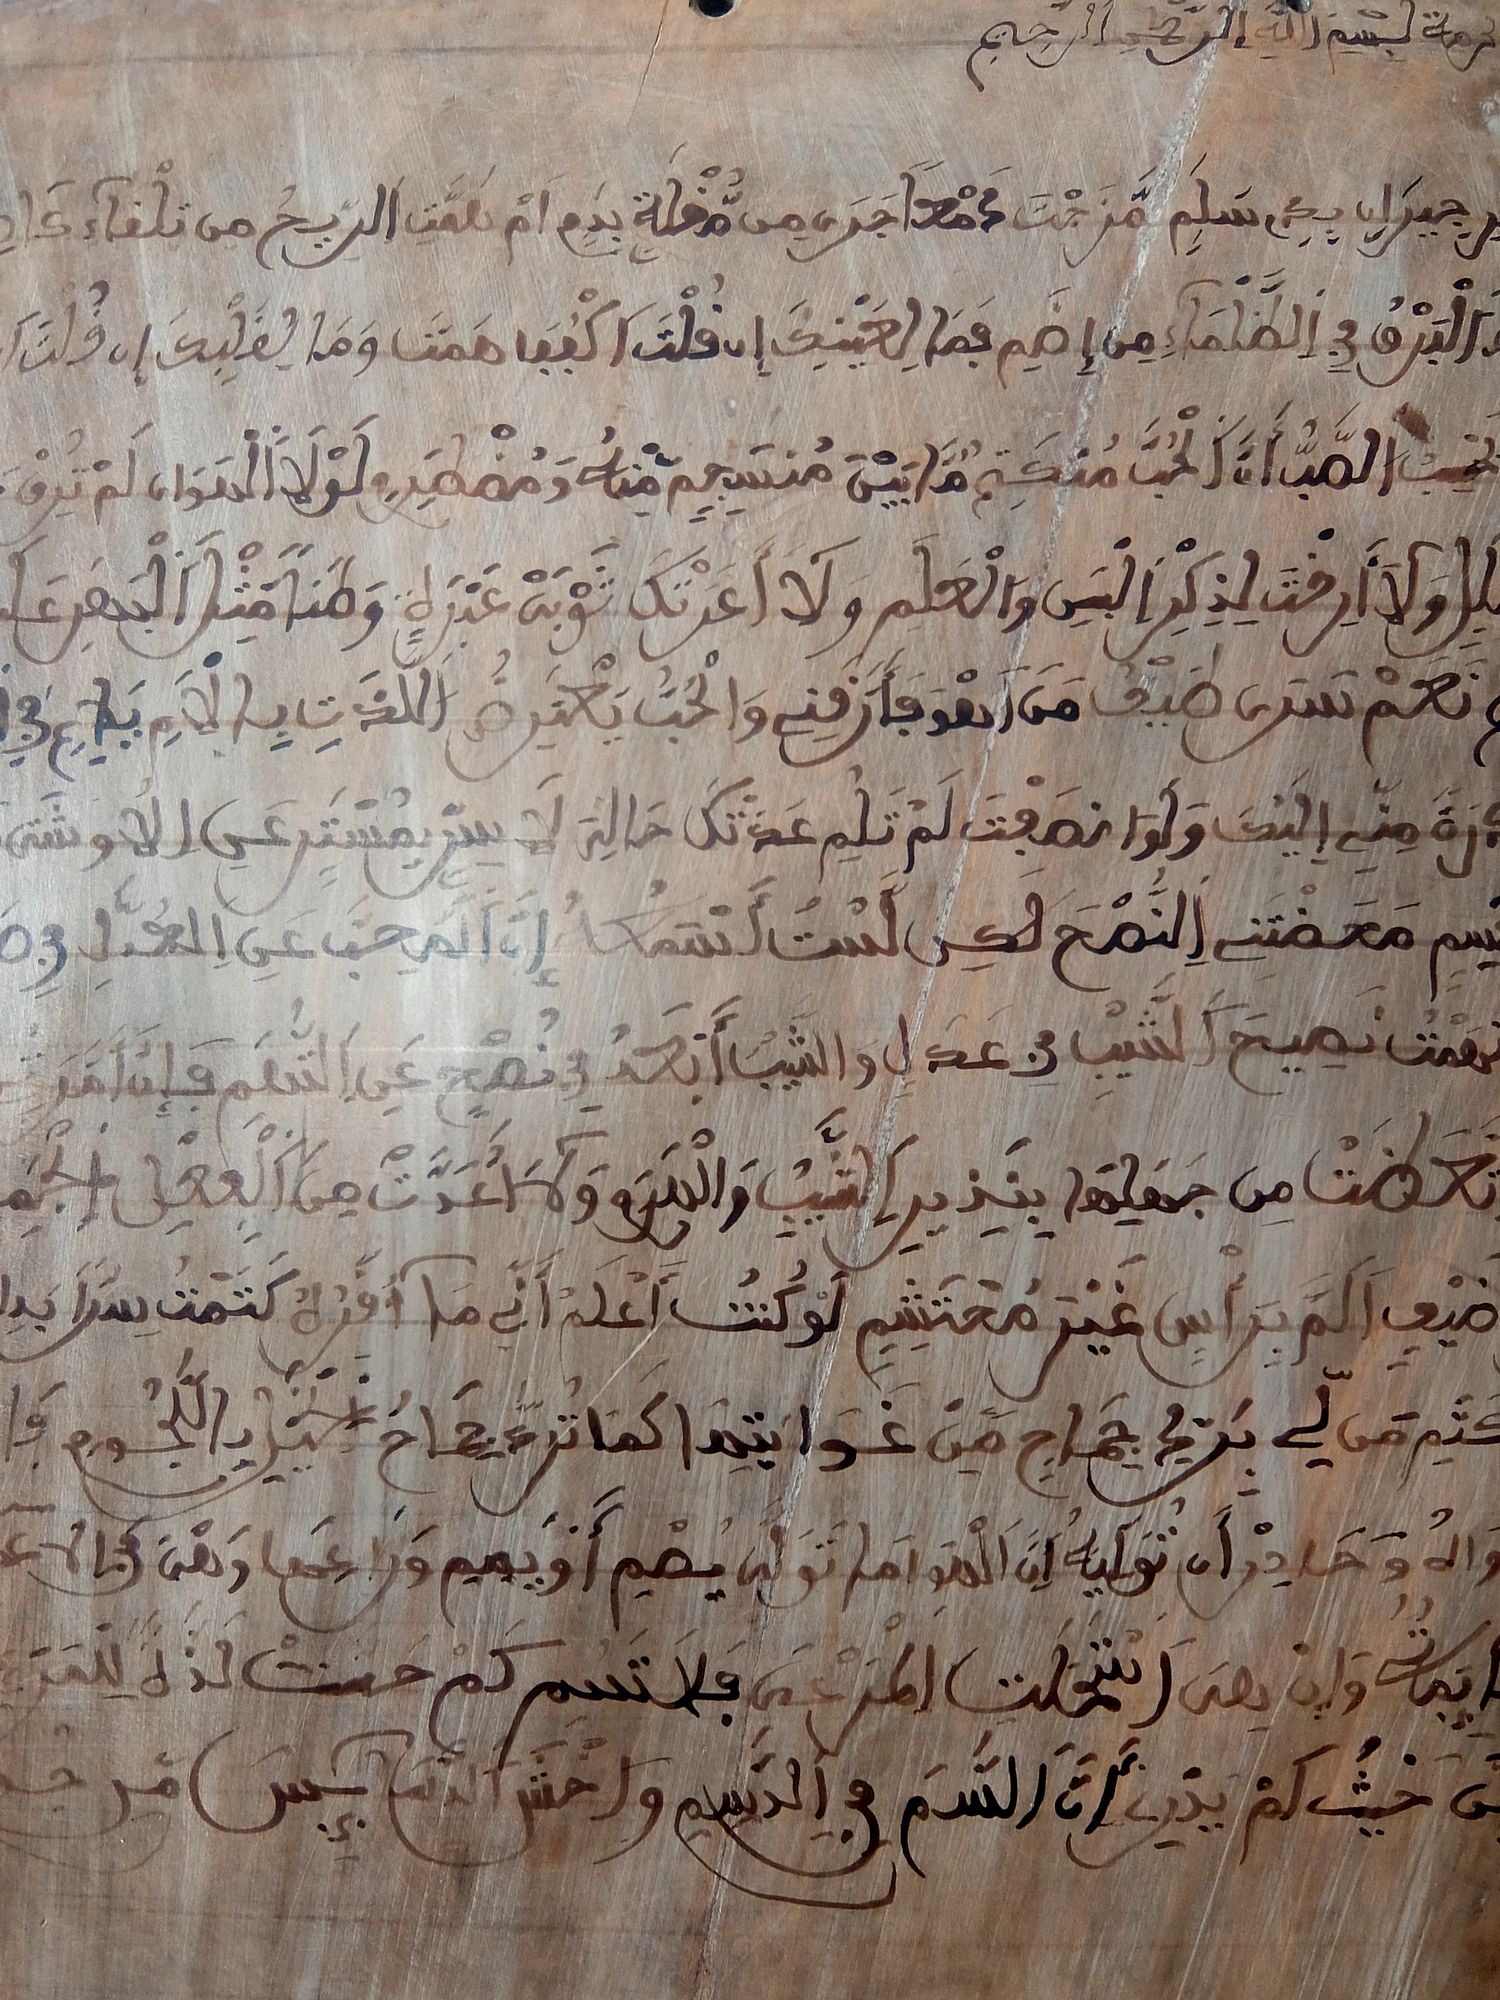 بسم الله الرحمن الرحيم
جيران بذي سلم مزجت دمعا جرى من مقلة بدم ام هبت الريح من تلقاء
البرق في الظلماء من إضم فما لعينيك إن قلت اكففا همتا وما لقلبك إن قلت
الصب أن الحب منكتم ما بين منسجم منه ومضطرم لولا الهوى لم ترق
ولا أرقت لذكر البن والعلم ولا أعرتك ثوبي عبرة وضنا مثل البهر على
نعم سرى طيف من اهوى فأرقني والحب يعترض اللذت بالالم
مني إليك ولو انصفت لم تلم عدتك حالي لا سر بمستتر عن الوشتي
محضتني النصح لكن لست أسمعه إن المحب عن العذل في
نصيح الشيب في عذل والشيب أبعد في نصح عن التهم فإن أمرت
تعظت من جهلها بنذير الشيب والهرم ولا أعدت من الفعل الجم
ضيف الم برأس غير محتشم لو كنت أعلم أني ما أوقره كتمت سرا بدا
من لي برد جماح من غوايتها كما ترد جماح الخيل باللجوم
والهوى وحاذر أن توليه إن الهوى ما تولى يصم أو يصم وراعها وهي في الا
وإن هي استحلت المرعى فلا تسم كم حسنت لذة للمرء
حيث لم يدر أن السم في الدسم واخش الدسائس من